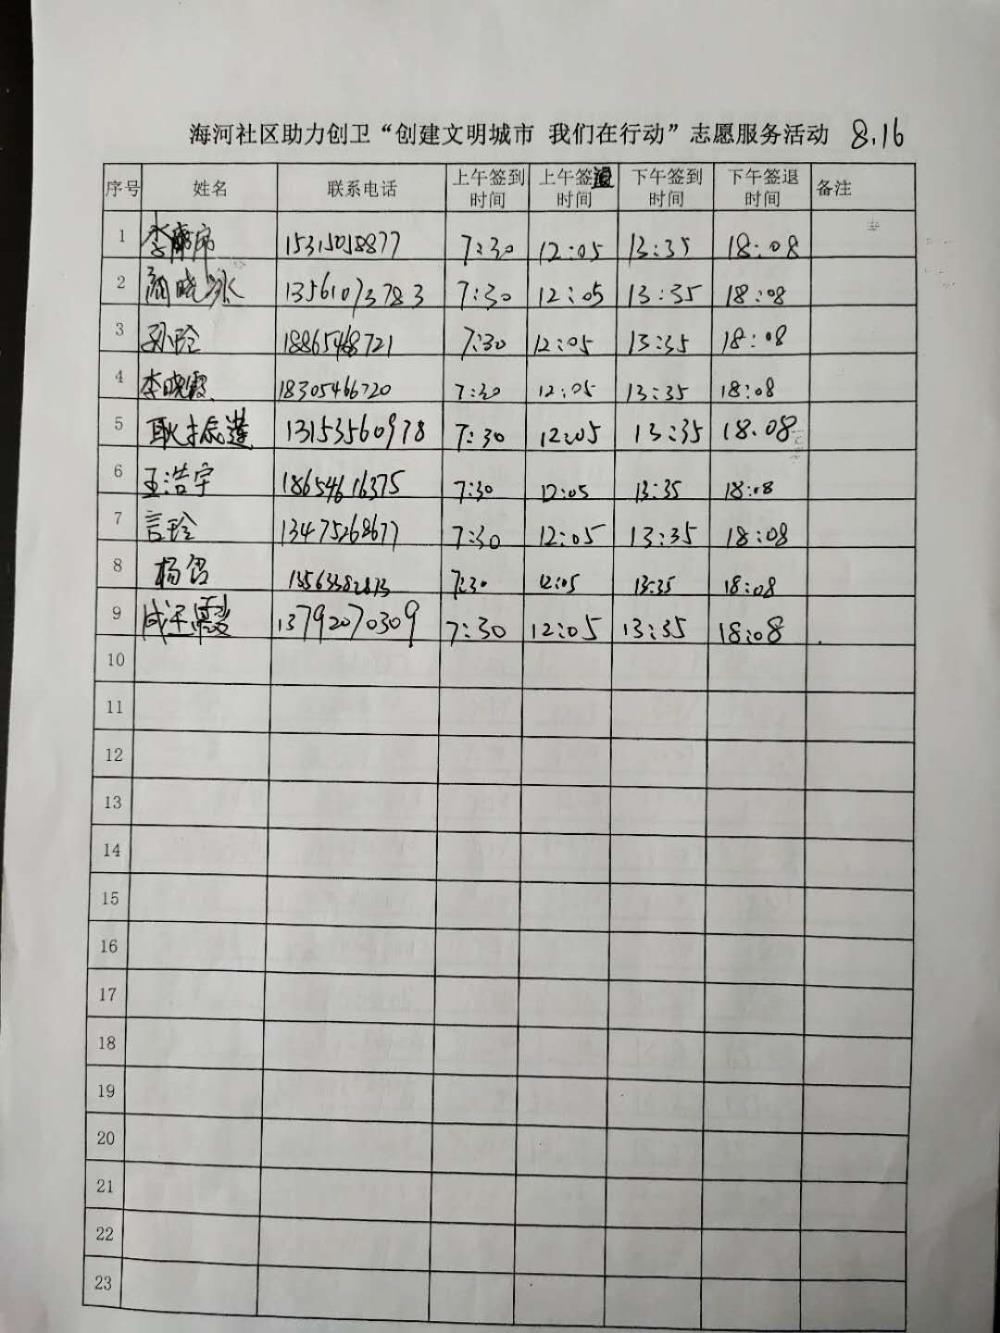 海河社区助力创卫“创建文明城市 我们在行动”志愿服务活动 8.16
序号 姓名 联系电话 上午签到时间 上午签退时间 下午签到时间 下午签退时间 备注
1 李 15315018877 7:30 12:05 13:35 18:08
2 颜晓冰 13561073783 7:30 12:05 13:35 18:08
3 孙玲 18865468721 7:30 12:05 13:35 18:08
4 李晓霞 18305466720 7:30 12:05 13:35 18:08
5 耿振莲 13153560978 7:30 12:05 13:35 18.08
6 王浩宇 18654616375 7:30 12:05 13:35 18:08
7 言玲 13475268677 7:30 12:05 13:35 18:08
8 杨 7:30 12:05 13:35 18:08
9 成 霞 13792070309 7:30 12:05 13:35 18:08
10
11
12
13
14
15
16
17
18
19
20
21
22
23